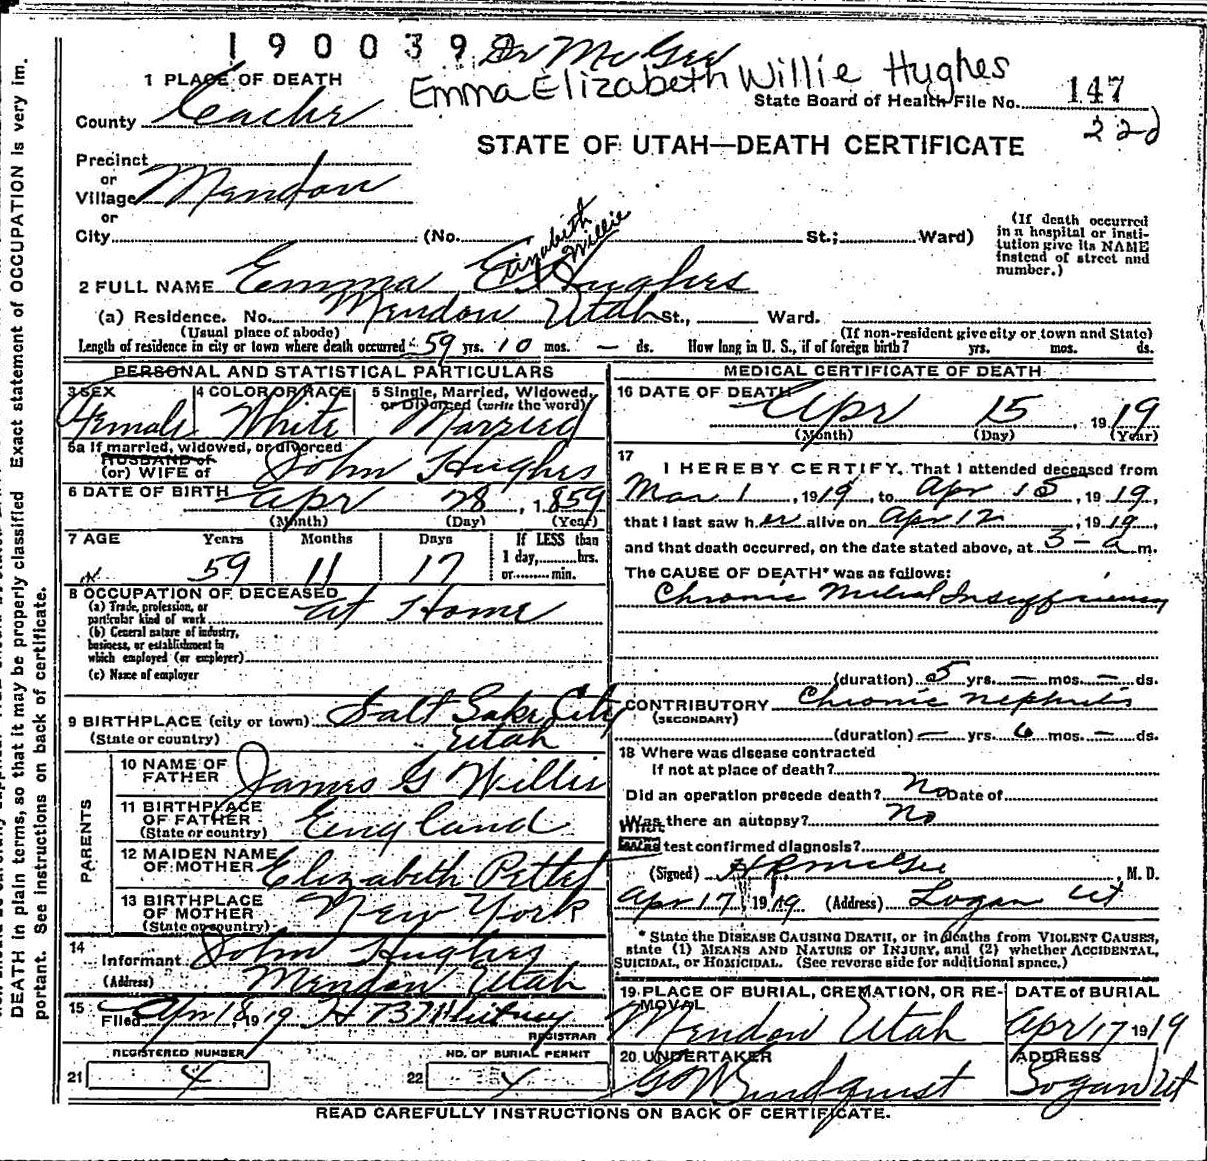 190039 Dr McGee
Emma Elizabeth Willie Hughes
1 PLACE OF DEATH
State Board of Health File No. 147
County Cache
22d
STATE OF UTAH—DEATH CERTIFICATE
Precinct
or
Village Mendon
or
City (No. St.; Ward)
(If death occurred in a hospital or insti-
tution give its NAME
instead of street and
number.)
Elizabeth
Willie
2 FULL NAME Emma E Hughes
(a) Residence. No. Mendon Utah St., Ward.
(Usual place of abode) (If non-resident give city or town and State)
Length of residence in city or town where death occurred 59 yrs. 10 mos. — ds. How long in U. S., if of foreign birth? yrs. mos. ds.
PERSONAL AND STATISTICAL PARTICULARS
3 SEX 4 COLOR OR RACE 5 Single, Married, Widowed,
or Divorced (write the word)
Female White Married
5a If married, widowed, or divorced
HUSBAND of
(or) WIFE of John Hughes
6 DATE OF BIRTH Apr 28, 1859
(Month) (Day) (Year)
7 AGE Years Months Days If LESS than
1 day,......hrs.
or......min.
59 11 17
8 OCCUPATION OF DECEASED
(a) Trade, profession, or
particular kind of work At Home
(b) General nature of industry,
business, or establishment in
which employed (or employer)
(c) Name of employer
9 BIRTHPLACE (city or town) Salt Lake City
(State or country) Utah
PARENTS
10 NAME OF
FATHER James G Willie
11 BIRTHPLACE
OF FATHER England
(State or country)
12 MAIDEN NAME
OF MOTHER Elizabeth Pettet
13 BIRTHPLACE
OF MOTHER New York
(State or country)
14
Informant John Hughes
(Address) Mendon Utah
15
Filed Apr 18, 1919 Whitney
REGISTRAR
REGISTERED NUMBER NO. OF BURIAL PERMIT
21 4 22 4
MEDICAL CERTIFICATE OF DEATH
16 DATE OF DEATH Apr 15 1919
(Month) (Day) (Year)
17
I HEREBY CERTIFY, That I attended deceased from
Mar 1, 1919, to Apr 15, 1919,
that I last saw her alive on Apr 12, 1919,
and that death occurred, on the date stated above, at 3-a m.
The CAUSE OF DEATH* was as follows:
Chronic Mitral Insufficiency
(duration) 5 yrs. — mos. — ds.
CONTRIBUTORY Chronic nephritis
(SECONDARY)
(duration) — yrs. 6 mos. — ds.
18 Where was disease contracted
if not at place of death?
Did an operation precede death? No Date of
Was there an autopsy? No
What test confirmed diagnosis?
(Signed) H R McGee, M. D.
Apr 17 1919 (Address) Logan Ut
* State the DISEASE CAUSING DEATH, or in deaths from VIOLENT CAUSES,
state (1) MEANS AND NATURE OF INJURY, and (2) whether ACCIDENTAL,
SUICIDAL, or HOMICIDAL. (See reverse side for additional space.)
19 PLACE OF BURIAL, CREMATION, OR RE-
MOVAL DATE of BURIAL
Mendon Utah Apr 17 1919
20 UNDERTAKER ADDRESS
G W Lindquist Logan Ut
READ CAREFULLY INSTRUCTIONS ON BACK OF CERTIFICATE.
Exact statement of OCCUPATION is very im-
DEATH in plain terms, so that it may be properly classified
portant. See instructions on back of certificate.